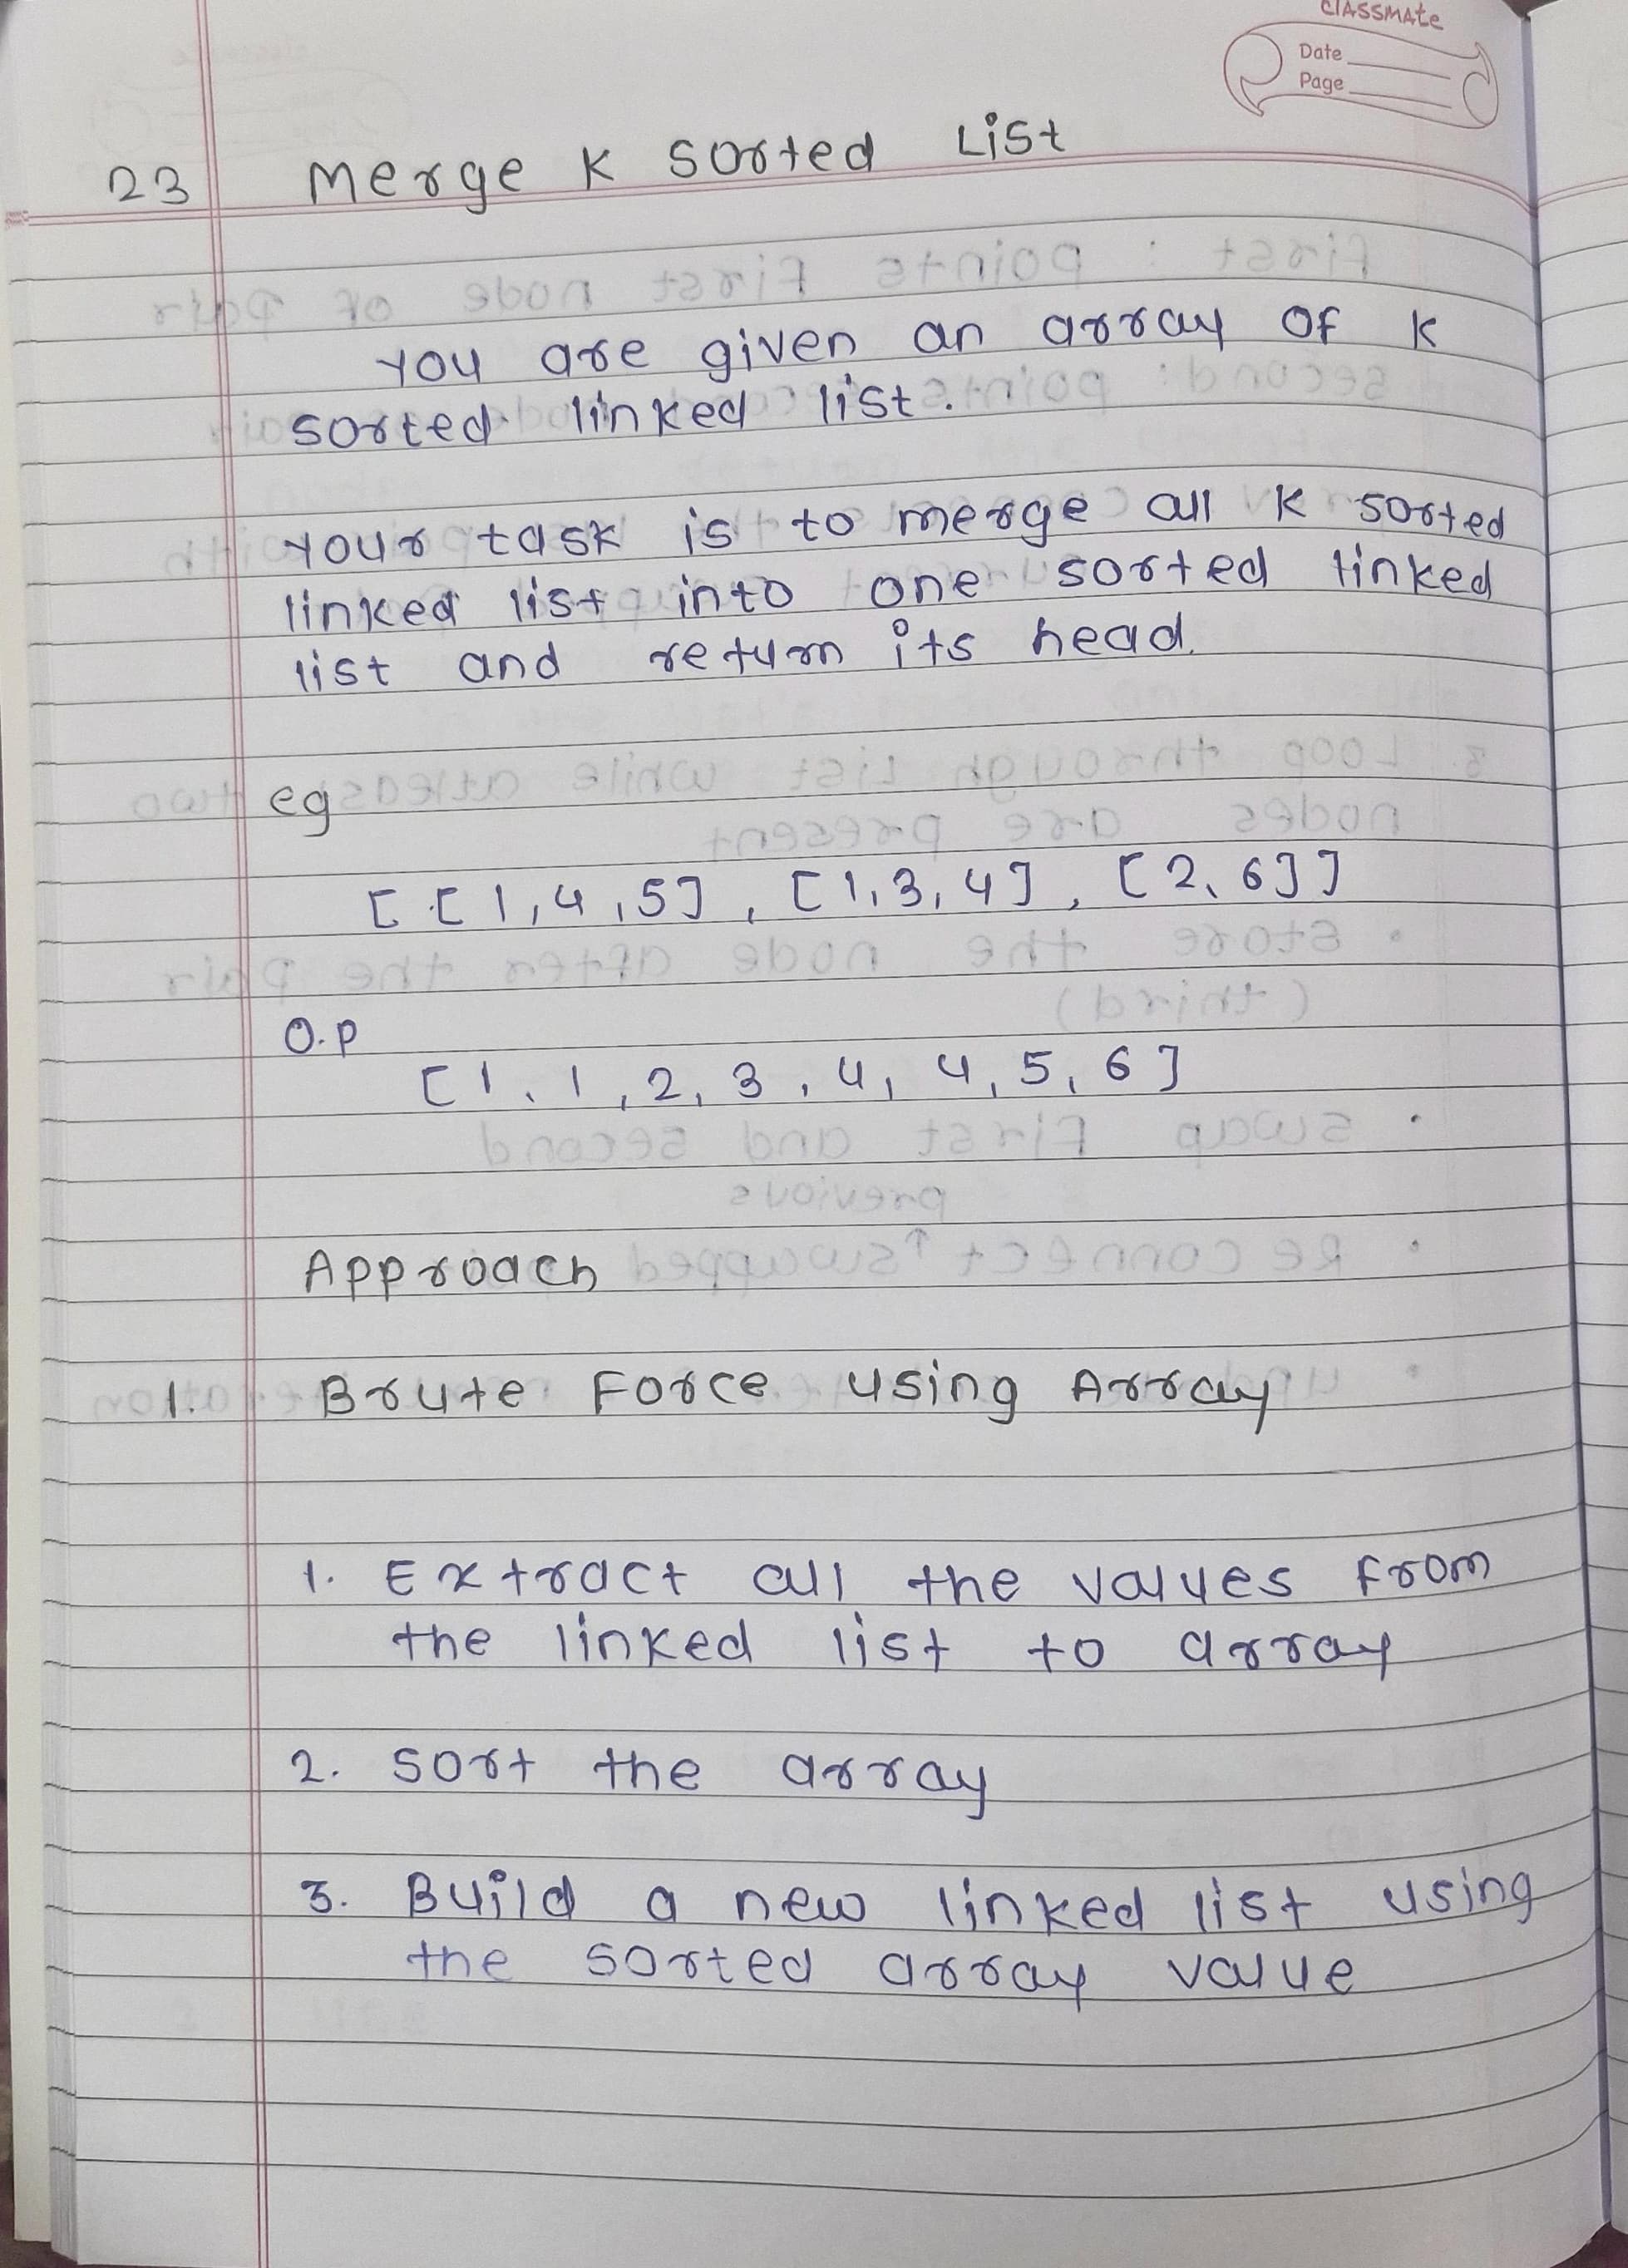 classmate
Date
Page
23 Merge K Sorted List
You are given an array of K
sorted linked list.
Your task is to merge all K sorted
linked list into one sorted linked
list and return its head.
eg
[[1,4,5], [1,3,4], [2,6]]
O.P
[1,1,2,3,4,4,5,6]
Approach
1. Brute Force using Array
1. Extract all the values from
the linked list to array
2. Sort the array
3. Build a new linked list using
the sorted array value